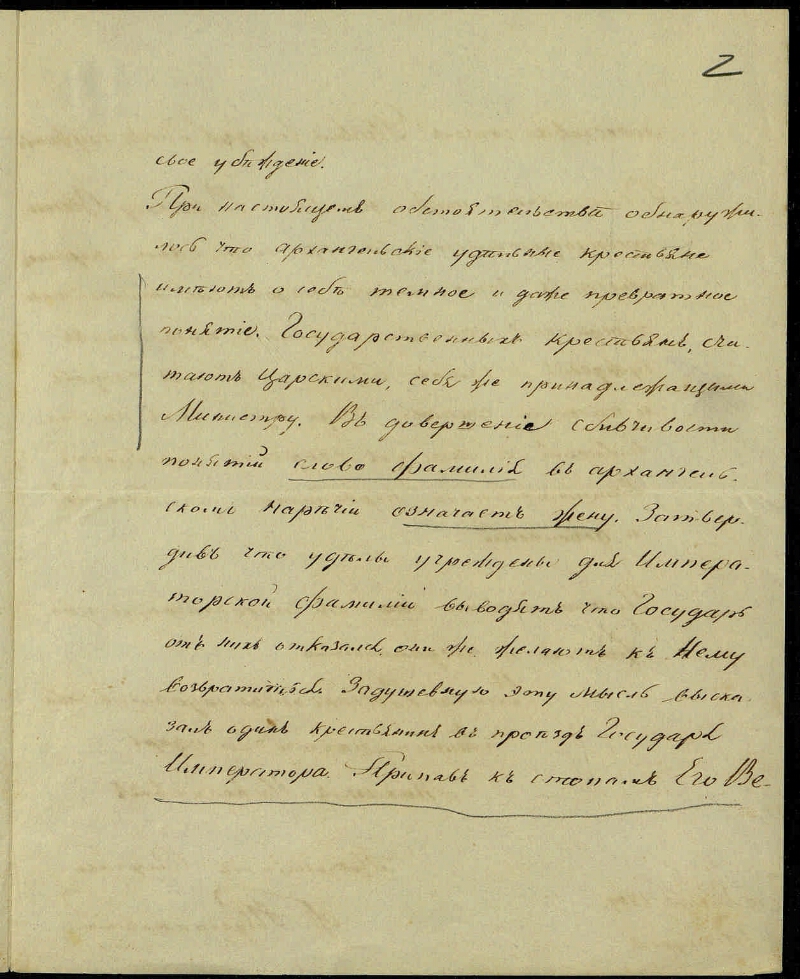 2
свое убѣжденіе.
При настоящемъ обстоятельствѣ обнаружи-
лось что архангельскіе удѣльные крестьяне
имѣютъ о себѣ темное и даже превратное
понятіе. Государственныхъ крестьянъ, счи-
таютъ Царскими, себя же принадлежащими
Министру. Въ довершеніе сбивчивости
понятій слово фамилія въ архангель-
скомъ нарѣчіи означаетъ жену. Затвер-
дивъ что удѣлы учреждены для Импера-
торской фамиліи выводятъ что Государь
отъ нихъ отказался, они же желаютъ къ Нему
возвратиться. Задушевную эту мысль выска-
залъ одинъ крестьянинъ въ проѣздъ Государя
Императора. Припавъ къ стопамъ Его Ве-